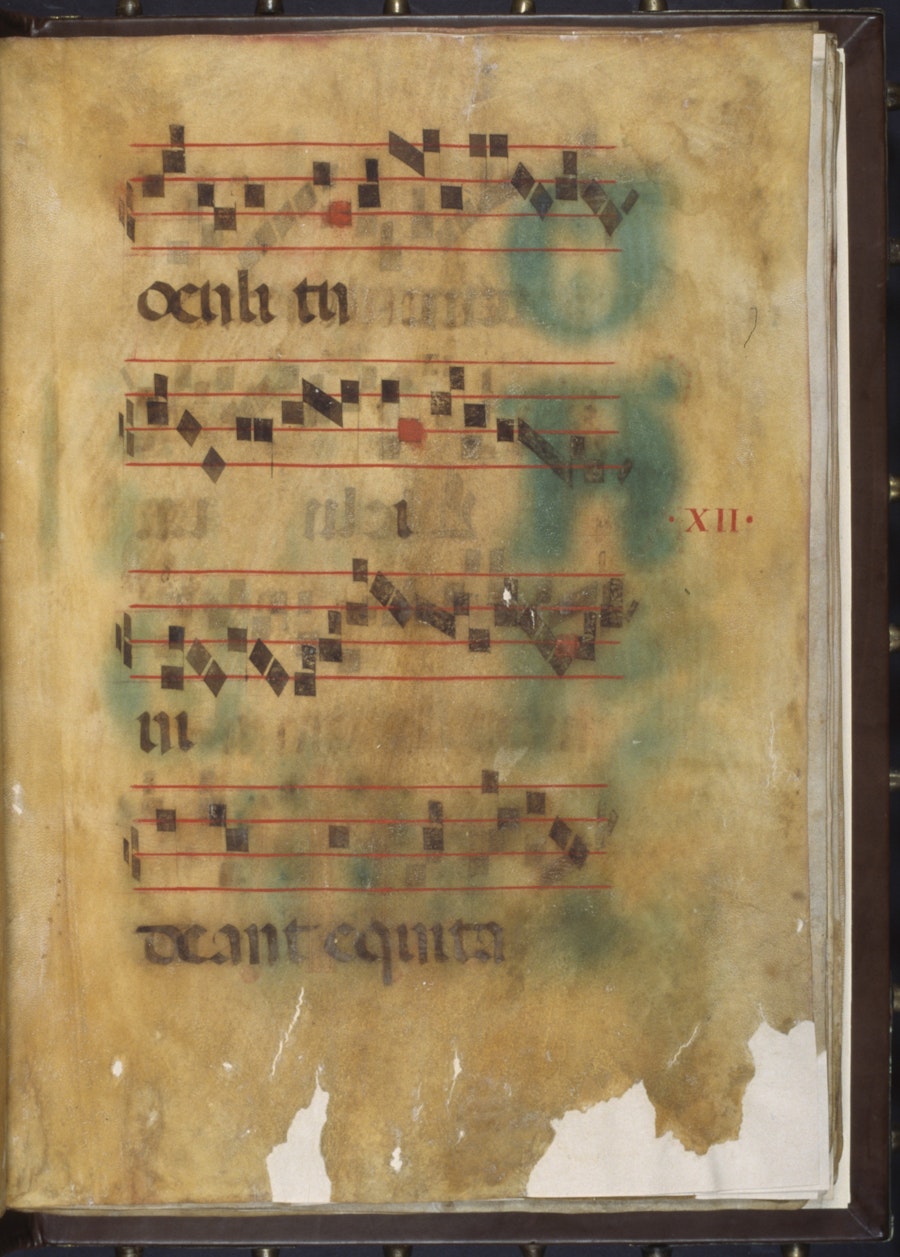 oculi tu
·XII·
i
ni
deant equita